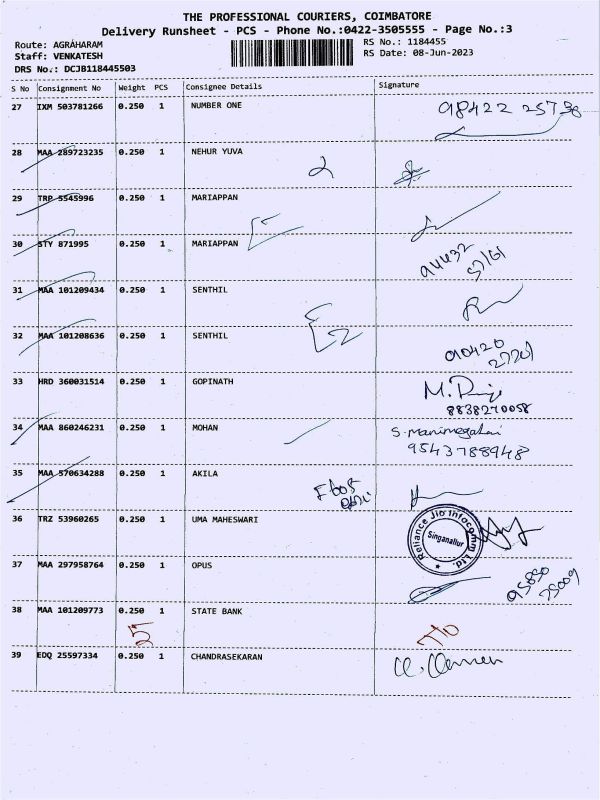 THE PROFESSIONAL COURIERS, COIMBATORE
Delivery Runsheet - PCS - Phone No.:0422-3505555 - Page No.:3
Route: AGRAHARAM
RS No.: 1184455
Staff: VENKATESH
RS Date: 08-Jun-2023
DRS No.: DCJB118445503
S No Consignment No Weight PCS Consignee Details Signature
27 IXM 503781266 0.250 1 NUMBER ONE 98422 25738
28 MAA 289723235 0.250 1 NEHUR YUVA 2
29 TRP 5545996 0.250 1 MARIAPPAN
30 STY 871995 0.250 1 MARIAPPAN
31 MAA 101209434 0.250 1 SENTHIL
32 MAA 101208636 0.250 1 SENTHIL 2
33 HRD 360031514 0.250 1 GOPINATH
8838270058
34 MAA 860246231 0.250 1 MOHAN S. Manimegalai
9543788948
35 MAA 570634288 0.250 1 AKILA
36 TRZ 53960265 0.250 1 UMA MAHESWARI Reliance Jio Infocomm Ltd.
Singanallur
37 MAA 297958764 0.250 1 OPUS
38 MAA 101209773 0.250 1 STATE BANK
5
39 EDQ 25597334 0.250 1 CHANDRASEKARAN